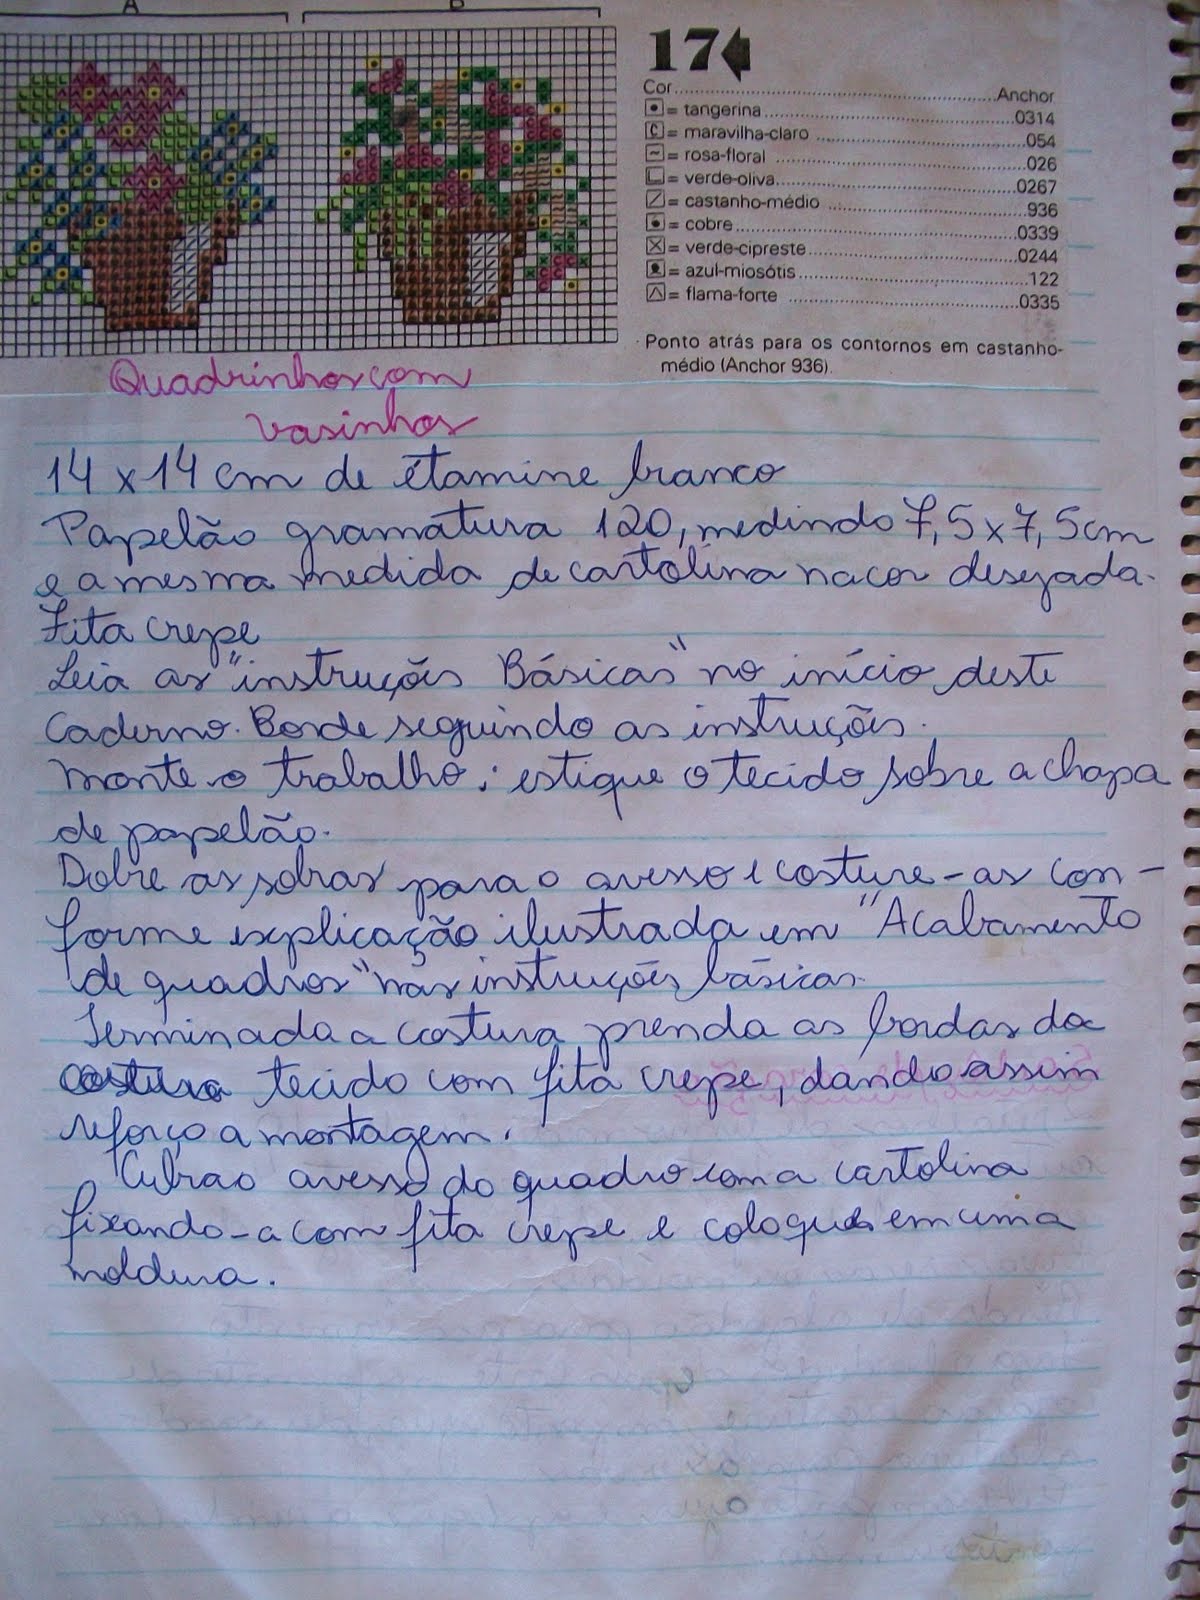 A B
17
Cor Anchor
= tangerina 0314
= maravilha-claro 054
= rosa-floral 026
= verde-oliva 0267
= castanho-médio 936
= cobre 0339
= verde-cipreste 0244
= azul-miosótis 122
= flama-forte 0335
Ponto atrás para os contornos em castanho-
médio (Anchor 936).
Quadrinhos com
vasinhos
14 x 14 cm de étamine branco
Papelão gramatura 120, medindo 7,5 x 7,5 cm
e a mesma medida de cartolina na cor desejada.
Fita crepe
Leia as "instruções Básicas" no início deste
caderno. Borde seguindo as instruções.
Monte o trabalho: estique o tecido sobre a chapa
de papelão.
Dobre as sobras para o avesso e costure-as con-
forme explicação ilustrada em "Acabamento
de quadros" nas instruções básicas.
Terminada a costura prenda as bordas da
costura tecido com fita crepe, dando assim
reforço a montagem.
Cubra o avesso do quadro com a cartolina
fixando-a com fita crepe e coloque em uma
moldura.